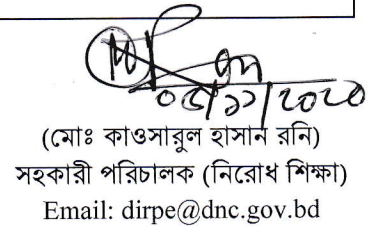 ০৫/১১/২০২০
(মোঃ কাওসারুল হাসান রনি)
সহকারী পরিচালক (নিরোধ শিক্ষা)
Email: dirpe@dnc.gov.bd